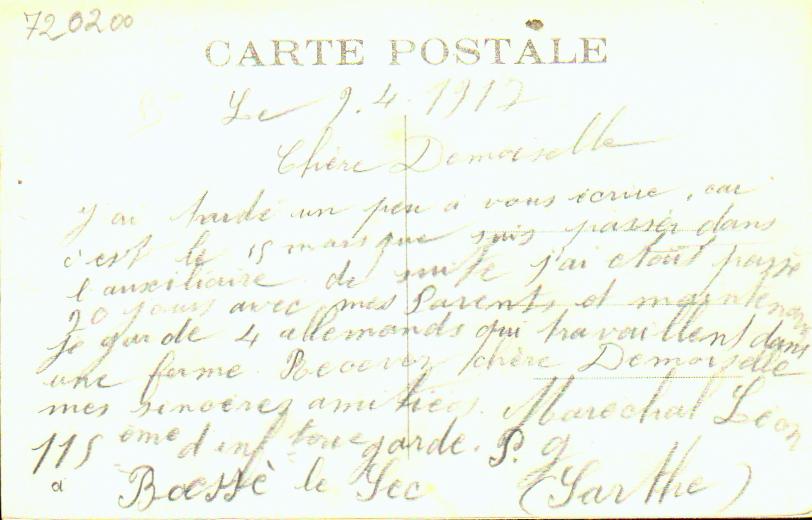 720200
CARTE POSTALE
Le 9.4.1917
Chère Demoiselle
J ai tardé un peu a vous écrire, car
c'est le 15 mars que suis passer dans
l auxiliaire de suite j'ai etait passé
20 jours avec mes Parents et maintenan
je garde 4 allemands qui travaillent dans
une ferme. Recevez chère Demoiselle
mes sincères amitiées. Maréchal Léon
115 eme d inf garde. P. g
a Bæssè le Sec (Sarthe)